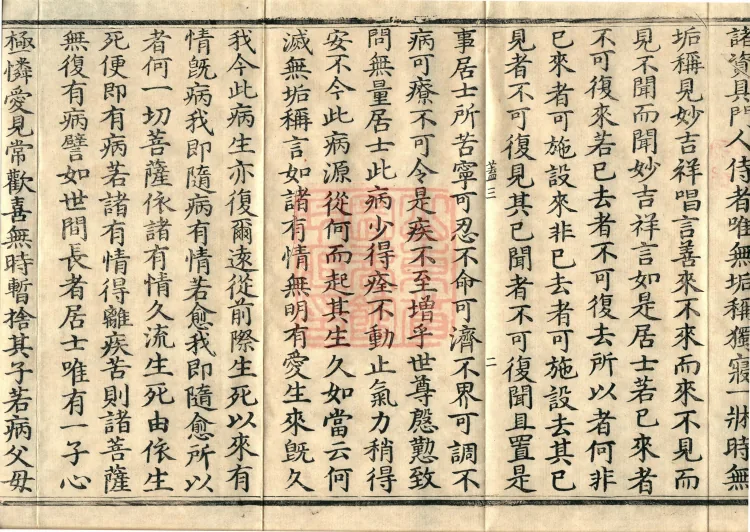 諸資具門人侍者唯無垢稱獨寢一牀時無
垢稱見妙吉祥唱言善來不來而來不見而
見不聞而聞妙吉祥言如是居士若已來者
不可復來若已去者不可復去所以者何非
已來者可施設來非已去者可施設去其已
見者不可復見其已聞者不可復聞且置是
蓋三 二
事居士所苦寧可忍不命可濟不界可調不
病可療不可令是疾不至增乎世尊慇懃致
問無量居士此病少得痊不動止氣力稍得
安不今此病源從何而起其生久如當云何
滅無垢稱言如諸有情無明有愛生來既久
我今此病生亦復爾遠從前際生死以來有
情既病我即隨病有情若愈我即隨愈所以
者何一切菩薩依諸有情久流生死由依生
死便即有病若諸有情得離疾苦則諸菩薩
無復有病譬如世間長者居士唯有一子心
極憐愛見常歡喜無時暫捨其子若病父母